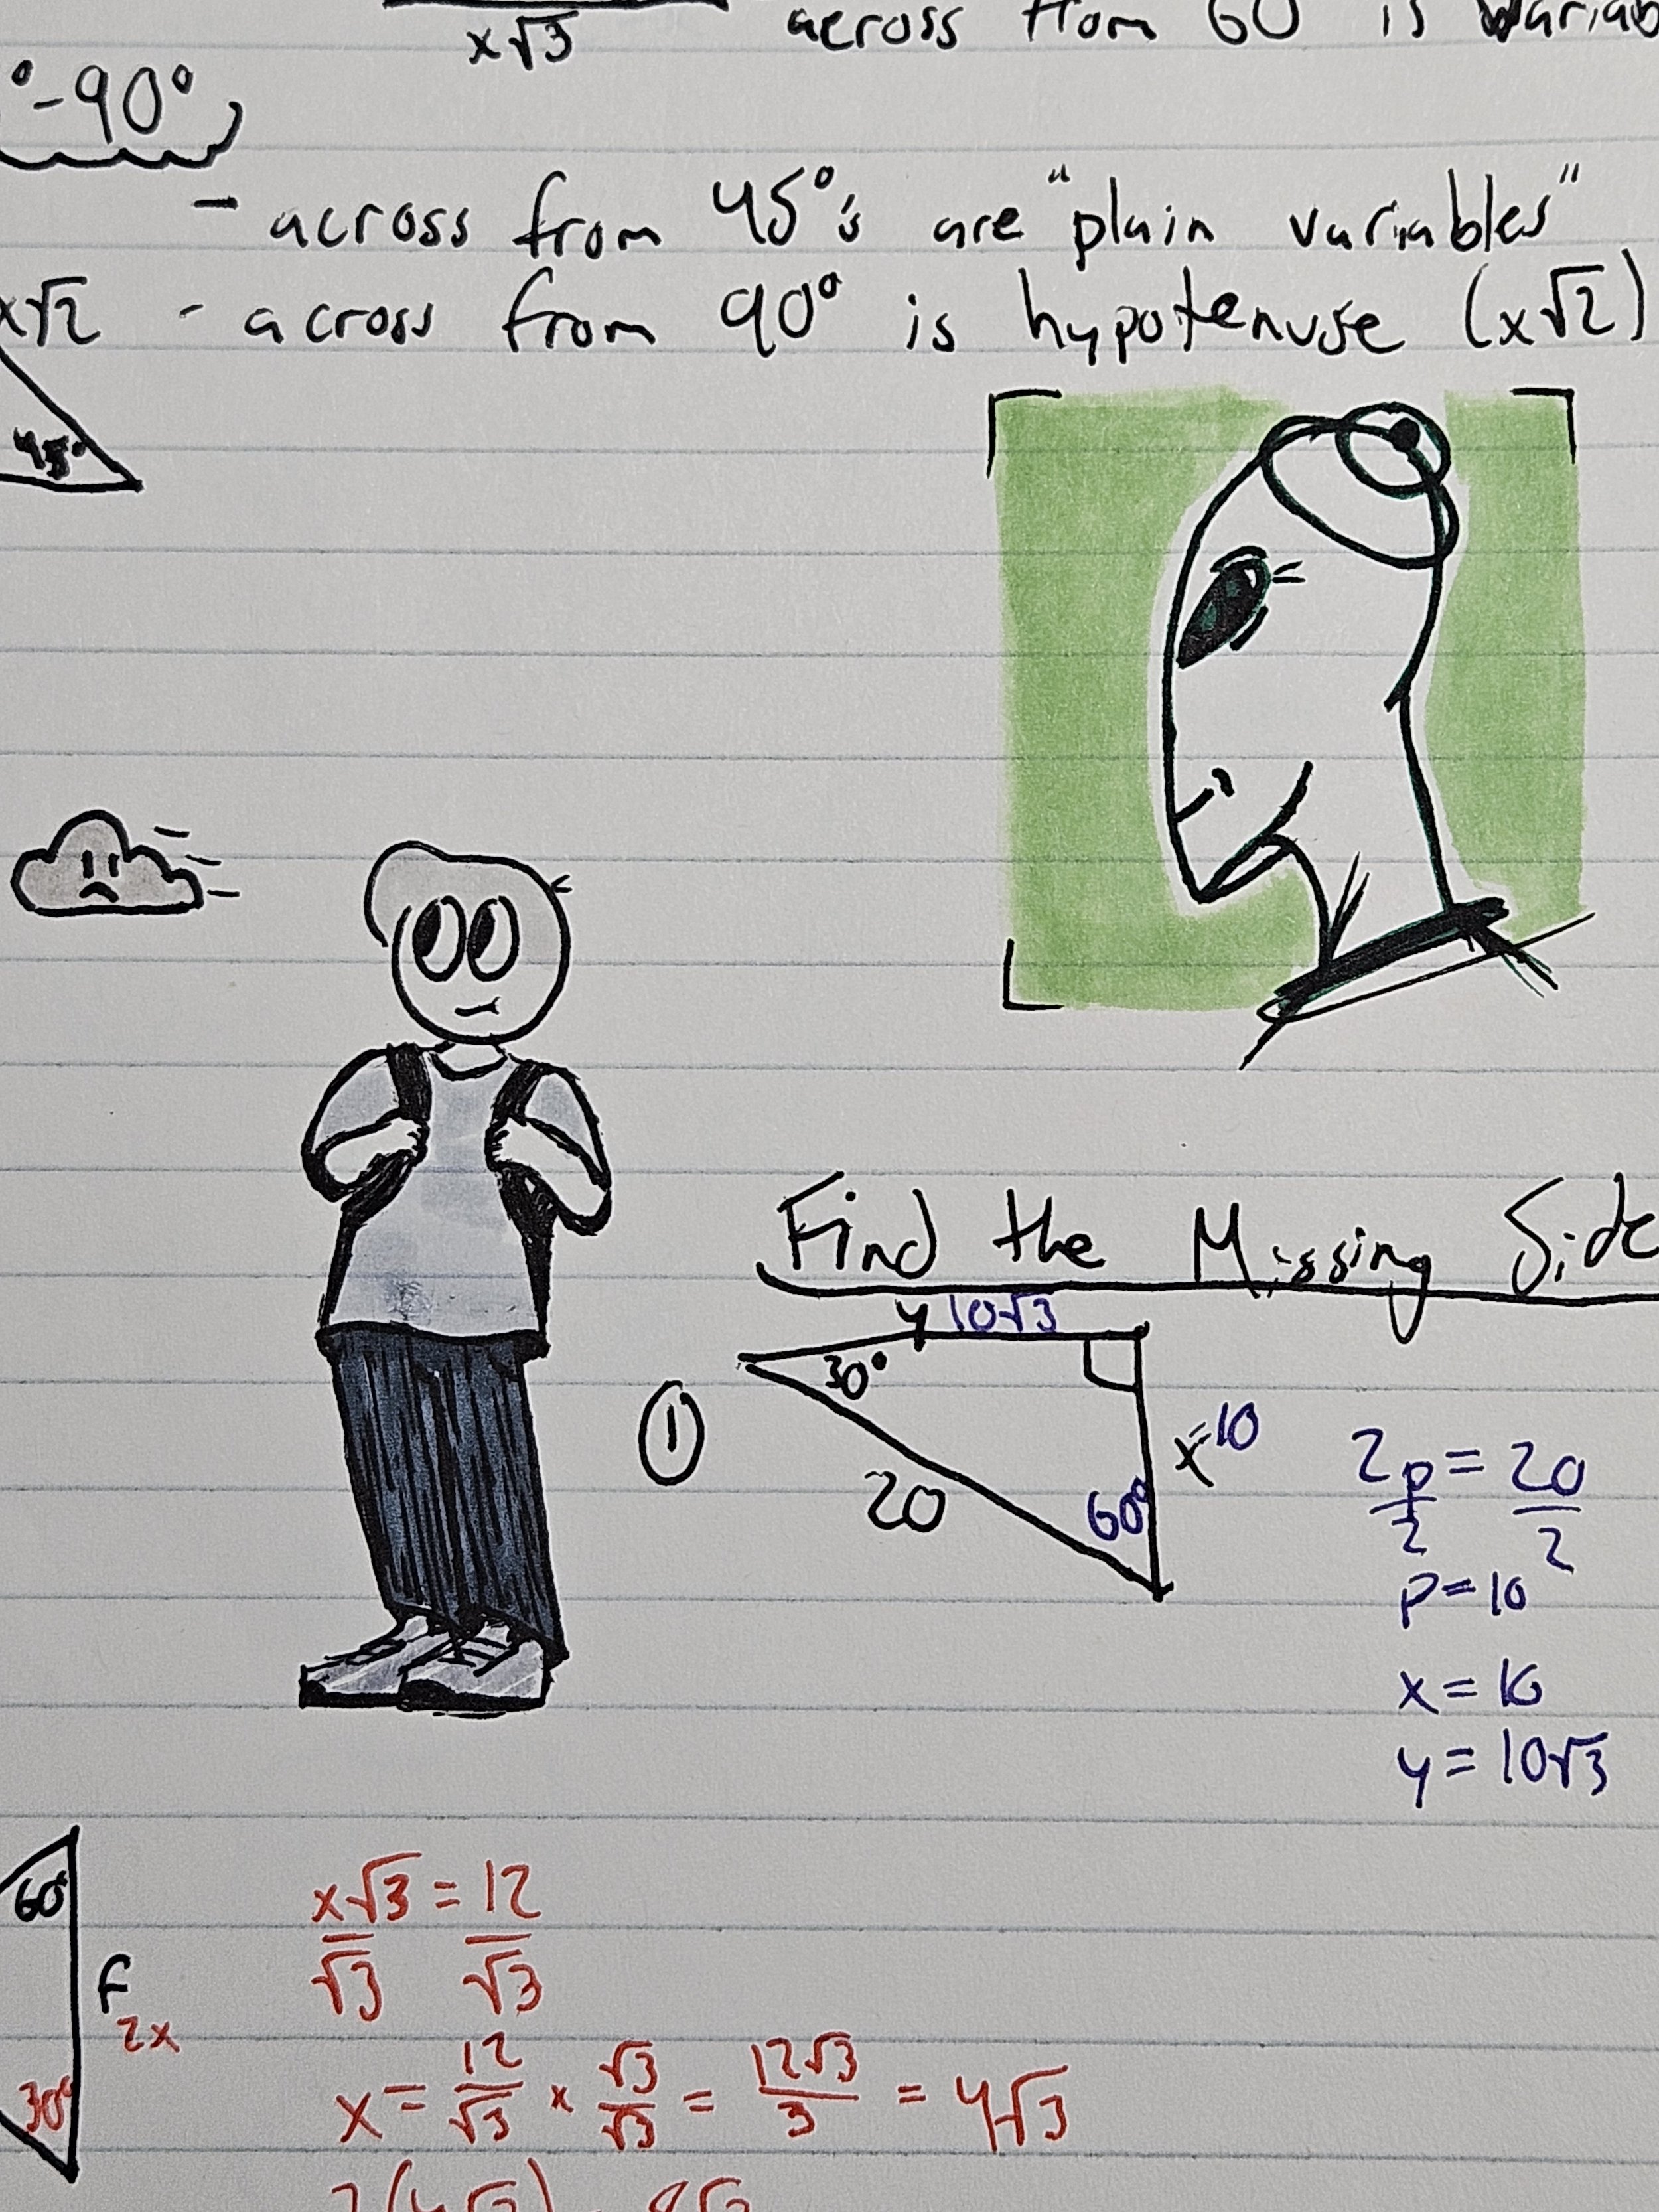 x√3 across from 60 is
°-90°
- across from 45°'s are "plain variables"
x√2 - across from 90° is hypotenuse (x√2)
45°
Find the Missing Side
y 10√3
30°
①
x=10
20
60°
2p = 20
2 2
p = 10
x = 10
y = 10√3
60°
f
2x
30°
x√3 = 12
√3 √3
x = 12/√3 × √3/√3 = 12√3/3 = 4√3